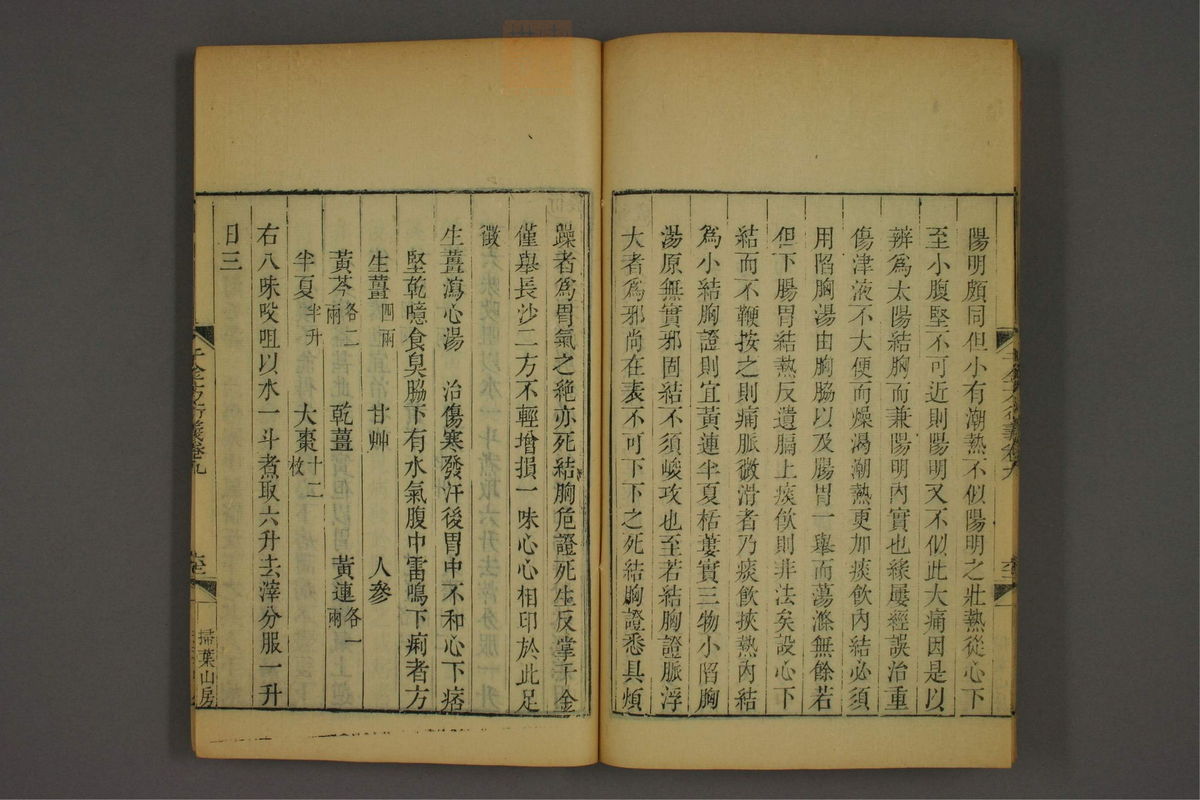 陽明頗同但小有潮熱不似陽明之壯熱從心下
至小腹堅不可近則陽明又不似此大痛因是以
辨爲太陽結胸而兼陽明內實也緣屢經誤治重
傷津液不大便而燥渴潮熱更加痰飲內結必須
用陷胸湯由胸脇以及腸胃一舉而蕩滌無餘若
但下腸胃結熱反遺膈上痰飲則非法矣設心下
結而不鞕按之則痛脈微滑者乃痰飲挾熱內結
爲小結胸證則宜黃連半夏栝蔞實三物小陷胸
湯原無實邪固結不須峻攻也至若結胸證脈浮
大者爲邪尚在表不可下下之死結胸證悉具煩
躁者爲胃氣之絶亦死結胸危證死生反掌千金
僅舉長沙二方不輕增損一味心心相印於此足
徵
生薑瀉心湯 治傷寒發汗後胃中不和心下痞
堅乾噫食臭脇下有水氣腹中雷鳴下痢者方
生薑四兩 甘艸 人參
黃芩各二兩 乾薑 黃連各一兩
半夏半升 大棗十二枚
右八味㕮咀以水一斗煮取六升去滓分服一升
日三
千金方衍義卷九
掃葉山房